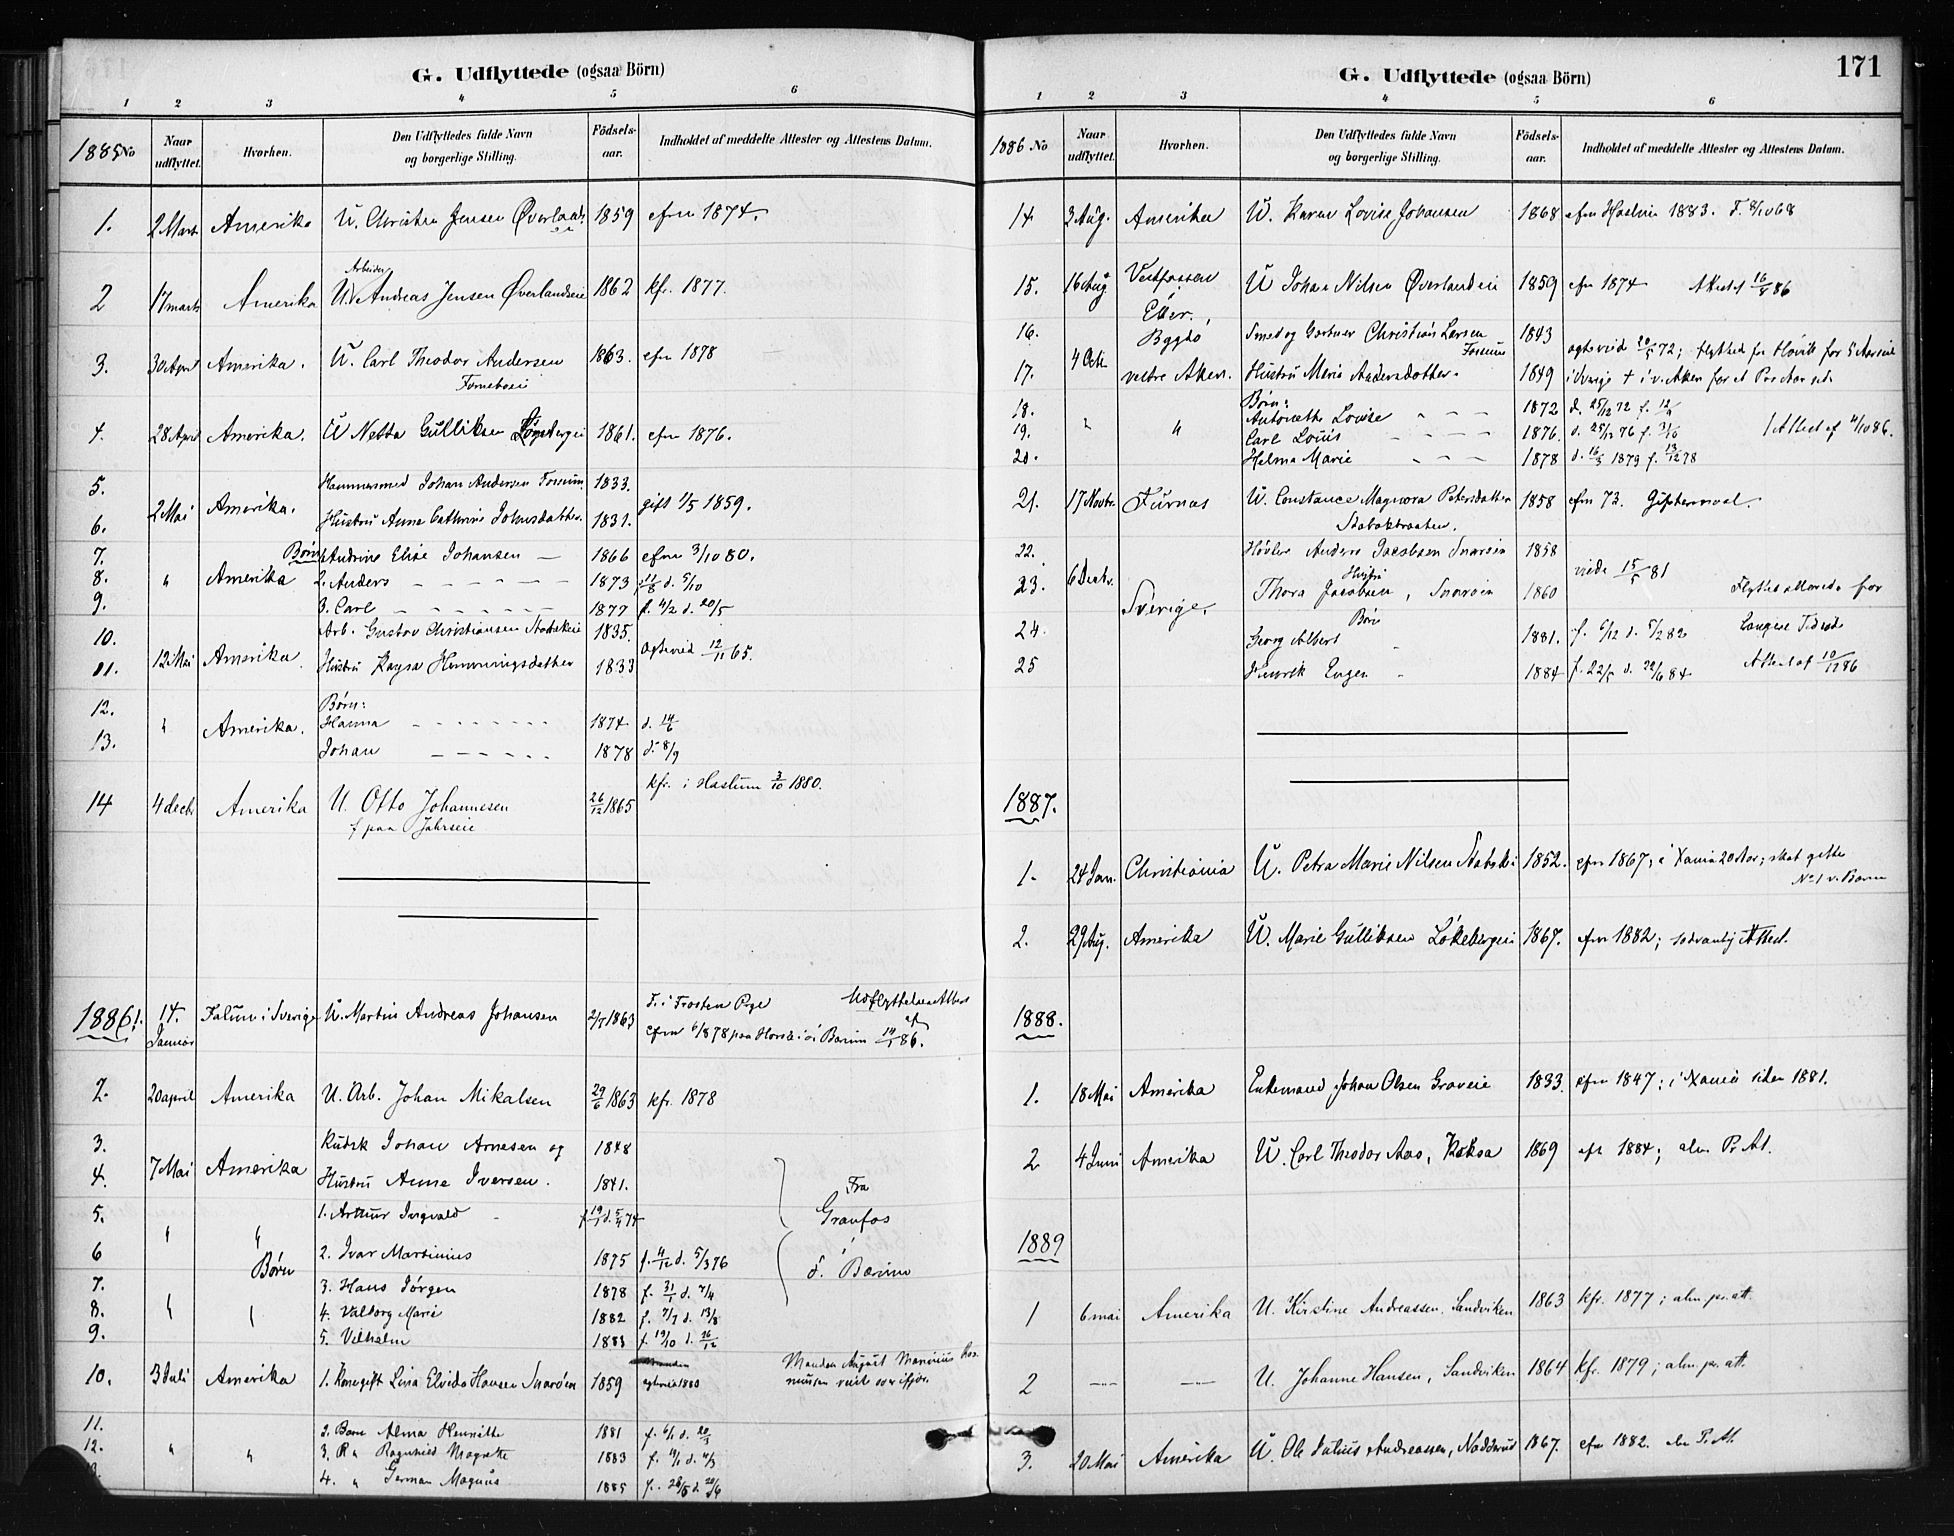 G. Udflyttede (ogsaa Börn)
1 2 3 4 5 6
1885 No
Naar udflyttet.
Hvorhen.
Den Udflyttedes fulde Navn og borgerlige Stilling.
Födsels-aar.
Indholdet af meddelte Attester og Attestens Datum.
1. 2 Marts Amerika U. Christian Jensen 1859 cfm 1874.
2 17 marts Amerika Arbeider U. Andreas Jensen Øverlandseie 1862 kfr. 1877.
3. 30 April Amerika. U. Carl Theodor Andersen 1863. cfm 1878
Forneboei
4. 28 April Amerika. U Netta Gulliksen 1861. cfm 1876.
5. Hammersmed Johan Andersen Fossum. 1833.
2 Mai Amerika. gift 1/5 1859.
6. Hustru Anne Cathrine Johnsdatter. 1831.
7. Børn 1. Andrine Elise Johansen — 1866 cfm 3/10 80.
8. " Amerika 2. Anders - - - - - 1873 11/8 d. 5/10
9. 3. Carl - - - - - 1877 f. 4/2 d. 20/5
10. Arb. Gustav Christiansen Stabekeie 1835.
12 Mai Amerika. 12/11 65.
11. Hustru Kaysa Hemmingsdatter 1833
12. Børn:
" Amerika. Hanna - - - - - 1874 d. 14/6
13. Johan - - - - - 1878 d. 8/9
14 4 decbr Amerika U. Otto Johannesen 26/12 1865 kfr. i Haslum 3/10 1880.
f paa Jahrseie
1886 1. 14. Januar Falun i Sverige U. Martin Andreas Johansen 2/7 1863 F. i Trosten
cfm 6/1878 paa i Bærum 14/1 86.
2. 20 april Amerika U. Arb. Johan Mikalsen 29/6 1863 kfr. 1878
3. Kudsk Johan Arnesen og 1848
7 Mai Amerika
4. Hustru Anne Iversen. 1841.
5. " " 1. Arthur Ingvald f 19/1 d. 5/4 74
Fra Granfos i Bærum
6 Børn 2. Ivar Martinius 1875 f. 4/12 d. 5/3 76
7. 3. Hans Jørgen 1878 f. 31/1 d. 7/4
8. " " 4. Valborg Marie 1882 f. 7/7 d. 13/8
9. 5. Vilhelm 1883 f. 19/10 d. 26/12
10. 3 Juli Amerika 1. Konegift Lina Elvida Hansen Snarøen 1859 1880 Manden August
11. 2. Barn Alma Henriette 1881 f. 6/1 d. 20/3
12. " " 3. Ragnhild 1883
4. " Herman Magnus 1885 f. 28/5 d. 20/6
G. Udflyttede (ogsaa Börn)
171
1 2 3 4 5 6
1886 No
Naar udflyttet.
Hvorhen.
Den Udflyttedes fulde Navn og borgerlige Stilling.
Födsels-aar.
Indholdet af meddelte Attester og Attestens Datum.
14 3 Aug. Amerika U. Karen Lovise Johansen 1868 cfm Haslum 1883. F. 8/10 68
15. 16 Aug Vestfossen Eker. U Johan Nilsen Øverlandeie 1859 cfm 1874 Attest 16/8 86
16. Bygdø Smed og Gartner Christian Larsen Fossum 1843
4 Octr. 20/5 72; flytted fra Høvik for 5 Aar
17. vestre Aker. Hustru Marie Andersdatter. 1849
Børn:
18. Louise - - - 1872 d. 25/12 72 f. 12/9
19. " " Carl Louis - - - 1876. d. 25/12 76 f. 3/10 Attest af 4/10 86.
20. Helma Marie - - - 1878 d. 16/3 1879 f. 13/12 78
21. 17 Novbr. Furnæs U. Constance Magnora Petersdatter 1858 cfm 73. Giftermaal.
22. Høvler Anders Jacobsen Snarøen 1858
6 Decbr. viede 15/5 81
23. Hustru Thora Jacobsen, Snarøen 1860
Sverige. Flyttet allerede for længere Tid side
24. Børn Georg Albert 1881. f. 6/12 d. 5/2 82
25 Henrik Eugen 1884 f. 22/5 d. 22/6 84 Attest af 10/12 86
1887.
1. 24 Jan. Christiania U. Petra Marie Nilsen Stabæk 1852. cfm 1867; i Xania 20 Aar; skal gifte
No 1 v. Bærum
2. 29 Aug. Amerika U. Marie Gulliksen Løkebergeie 1867. cfm 1882; sædvanlig Attest.
1888.
1. 18 Mai Amerika Enkemand Johan Olsen Graveie 1833. cfm 1847; i Xania siden 1881.
2 4 Juni Amerika U. Carl Theodor Aas, Koksa 1869 cfr 1884; alm Pr. At.
1889
1 6 mai Amerika U. Kirstine Andreassen, Sandviken 1863 kfr. 1877; alm. pr. att.
2 — — U. Johanne Hansen, Sandviken 1864 kfr. 1879; alm. pr. att.
3. 20 Mai Amerika U. Ole Julius Andreassen, Nadderud 1867. cfm 1882. alm P. At.